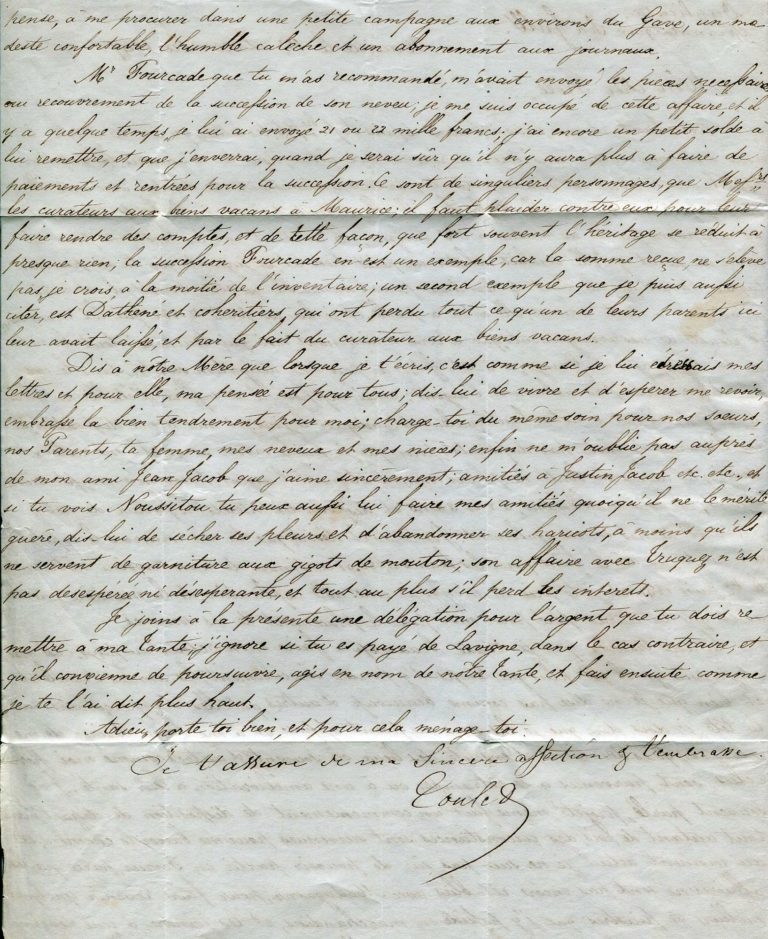 pense, à me procurer dans une petite campagne aux environs du Gave, un mo-
deste confortable, l'humble calèche et un abonnement aux journaux.
Mr Fourcade que tu m'as recommandé, m'avait envoyé les pieces necessaires
au recouvrement de la succession de son neveu; je me suis occupé de cette affaire, et il
y a quelque temps, je lui ai envoyé 21 ou 22 mille francs; j'ai encore un petit solde à
lui remettre, et que j'enverrai, quand je serai sûr qu'il n'y aura plus à faire de
paiements et rentrées pour la succession. Ce sont de singuliers personnages, que Messrs
les curateurs aux biens vacans à Maurice; il faut plaider contre eux pour leur
faire rendre des comptes, et de telle façon, que fort souvent l'héritage se réduit à
presque rien; la succession Fourcade en est un exemple, car la somme reçue, ne s'élève
pas, je crois à la moitié de l'inventaire; un second exemple que je puis aussi
citer, est Dathène et coheritiers, qui ont perdu tout ce qu'un de leurs parents ici
leur avait laissé, et par le fait du curateur aux biens vacans.
Dis à nôtre Mère que lorsque je t'écris, c'est comme si je lui adressais mes
lettres et pour elle, ma pensée est pour tous; dis-lui de vivre et d'espérer me revoir,
embrasse la bien tendrement pour moi; charge-toi du même soin pour nos soeurs,
nos Parents, ta femme, mes neveux et mes nièces; enfin ne m'oublie pas auprès
de mon ami Jean Jacob que j'aime sincèrement; amitiés à Justin Jacob etc. etc. et
si tu vois Noussitou tu peux aussi lui faire mes amitiés quoiqu'il ne le mérite
guère, dis-lui de sécher ses pleurs et d'abandonner ses haricots, à moins qu'ils
ne servent de garniture aux gigots de mouton; son affaire avec Truquez n'est
pas desespérée ni désesperante, et tout au plus s'il perd les intérets.
Je joins à la présente une délégation pour l'argent que tu dois re
mettre à ma Tante; j'ignore si tu es payé de Lavigne, dans le cas contraire, et
qu'il convienne de poursuivre, agis en nom de notre Tante, et fais ensuite comme
je te l'ai dit plus haut.
Adieu, porte toi bien, et pour cela ménage-toi.
Je t'assure de ma sincère affection & t'embrasse.